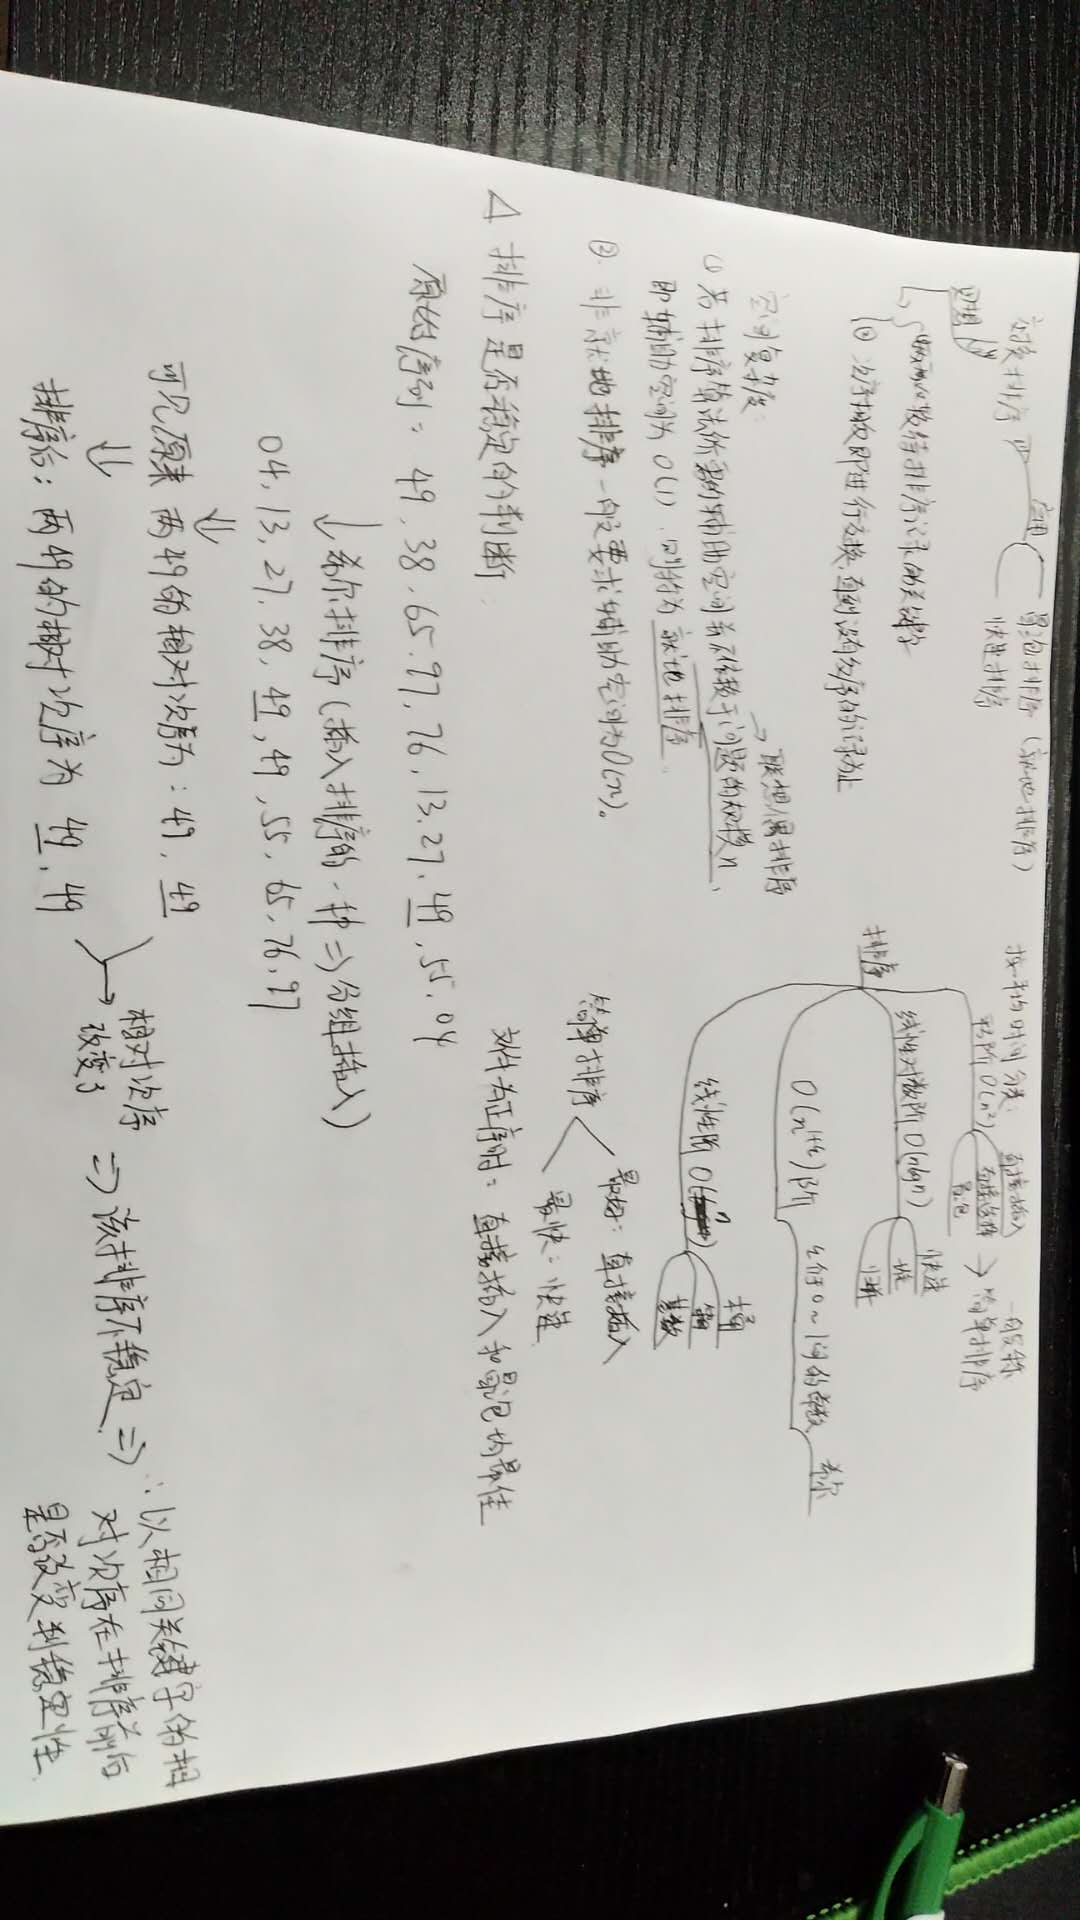 交换排序
应用
冒泡排序（就地排序）
快速排序
思想
①两两比较待排序记录的关键字
② 次序相反即进行交换,直到没有反序的记录为止
空间复杂度
→ 联想偶排序
① 若排序算法所需的辅助空间并不依赖于问题的规模n,
即辅助空间为 O(1),则称为 就地排序.
②. 非就地排序一般要求辅助空间为O(n)。
按平均时间分类:
排序
平方阶 O(n²)
直接插入
直接选择
冒泡
→
一般称
简单排序
线性对数阶 O(nlgn)
快速
堆
归并
O(n^{1+ε})阶
ε介于0～1间的常数
希尔
线性阶 O(n)
桶
箱
基数
简单排序
最好: 直接插入
最快: 快速
文件为正序时: 直接插入和冒泡均最佳
△ 排序是否稳定的判断
原始序列: 49, 38, 65, 97, 76, 13, 27, 49, 55, 04
↓希尔排序(插入排序的一种⇒分组插入)
04, 13, 27, 38, 49, 49, 55, 65, 76, 97
⇓
可见原来 两49的相对次序为: 49, 49
⇓
排序后: 两49的相对次序为 49, 49
→ 相对次序
改变了
⇒ 该排序不稳定 ⇒
∴以相同关键字的相
对次序在排序前后
是否改变判稳定性